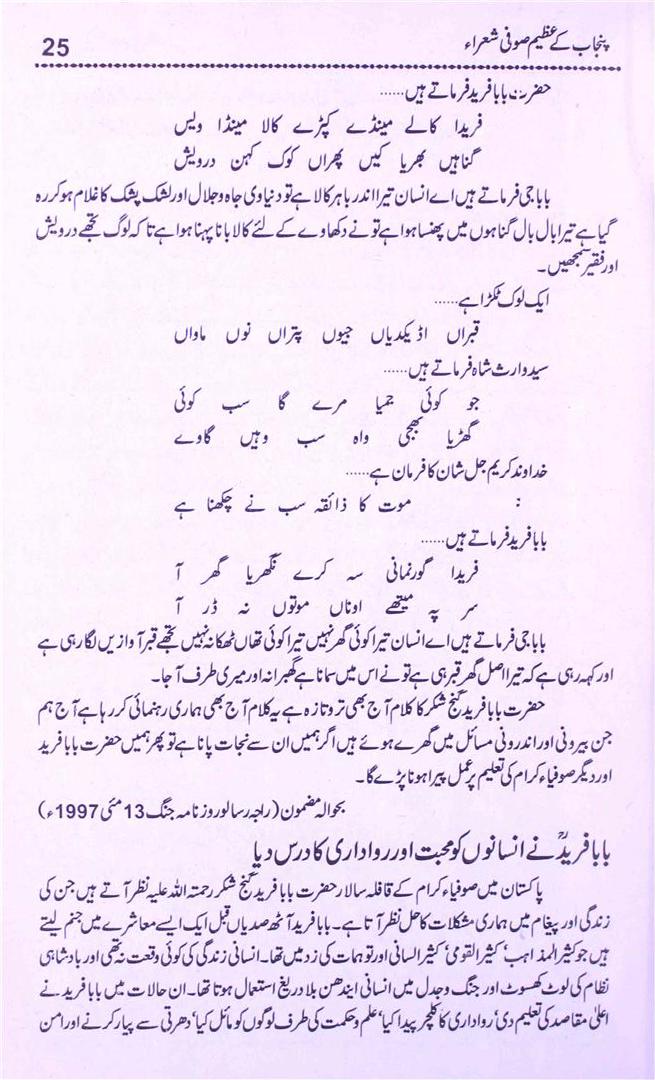 پنجاب کے عظیم صوفی شعراء
25
حضرت بابا فرید فرماتے ہیں......
فریدا کالے مینڈے کپڑے کالا مینڈا ویس
گناہیں بھریا کیں پھراں کوک کہن درویش
بابا جی فرماتے ہیں اے انسان تیرا اندر باہر کالا ہے تو دنیاوی جاہ و جلال اور لشک پشک کا غلام ہو کر رہ
گیا ہے تیرا بال بال گناہوں میں پھنسا ہوا ہے تو نے دکھاوے کے لئے کالا بانا پہنا ہوا ہے تا کہ لوگ تجھے درویش
اور فقیر سمجھیں۔
ایک لوک ٹکڑا ہے......
قبراں اڈیکدیاں جیوں پتراں نوں ماواں
سید وارث شاہ فرماتے ہیں......
جو کوئی جمیا مرے گا سب کوئی
گھڑیا بھجی واہ سب وہیں گاوے
خداوند کریم جل شان کا فرمان ہے......
موت کا ذائقہ سب نے چکھنا ہے
بابا فرید فرماتے ہیں......
فریدا گورنمانی سہ کرے نگھریا گھر آ
سر پہ میتھے اوناں موتوں نہ ڈر آ
بابا جی فرماتے ہیں اے انسان تیرا کوئی گھر نہیں تیرا کوئی تھاں ٹھکانہ نہیں تجھے قبر آوازیں لگا رہی ہے
اور کہہ رہی ہے کہ تیرا اصل گھر قبر ہی ہے تو نے اس میں سمانا ہے گھبرا نہ اور میری طرف آ جا۔
حضرت بابا فرید گنج شکر کا کلام آج بھی تر و تازہ ہے یہ کلام آج بھی ہماری رہنمائی کر رہا ہے آج ہم
جن بیرونی اور اندرونی مسائل میں گھرے ہوئے ہیں اگر ہمیں ان سے نجات پانا ہے تو پھر ہمیں حضرت بابا فرید
اور دیگر صوفیاء کرام کی تعلیم پر عمل پیرا ہونا پڑے گا۔
بحوالہ مضمون (راجہ رسالو روزنامہ جنگ 13 مئی 1997ء)
بابا فریدؒ نے انسانوں کو محبت اور رواداری کا درس دیا
پاکستان میں صوفیاء کرام کے قافلہ سالار حضرت بابا فرید گنج شکر رحمتہ اللہ علیہ نظر آتے ہیں جن کی
زندگی اور پیغام میں ہماری مشکلات کا حل نظر آتا ہے۔ بابا فرید آٹھ صدیاں قبل ایک ایسے معاشرے میں جنم لیتے
ہیں جو کثیر المذاہب' کثیر القومی' کثیر السانی اور توہمات کی زد میں تھا۔ انسانی زندگی کی کوئی وقعت نہ تھی اور بادشاہی
نظام کی لوٹ کھسوٹ اور جنگ و جدل میں انسانی ایندھن بلا دریغ استعمال ہوتا تھا۔ ان حالات میں بابا فرید نے
اعلیٰ مقاصد کی تعلیم دی' رواداری کا کلچر پیدا کیا' علم و حکمت کی طرف لوگوں کو مائل کیا' دھرتی سے پیار کرنے اور امن